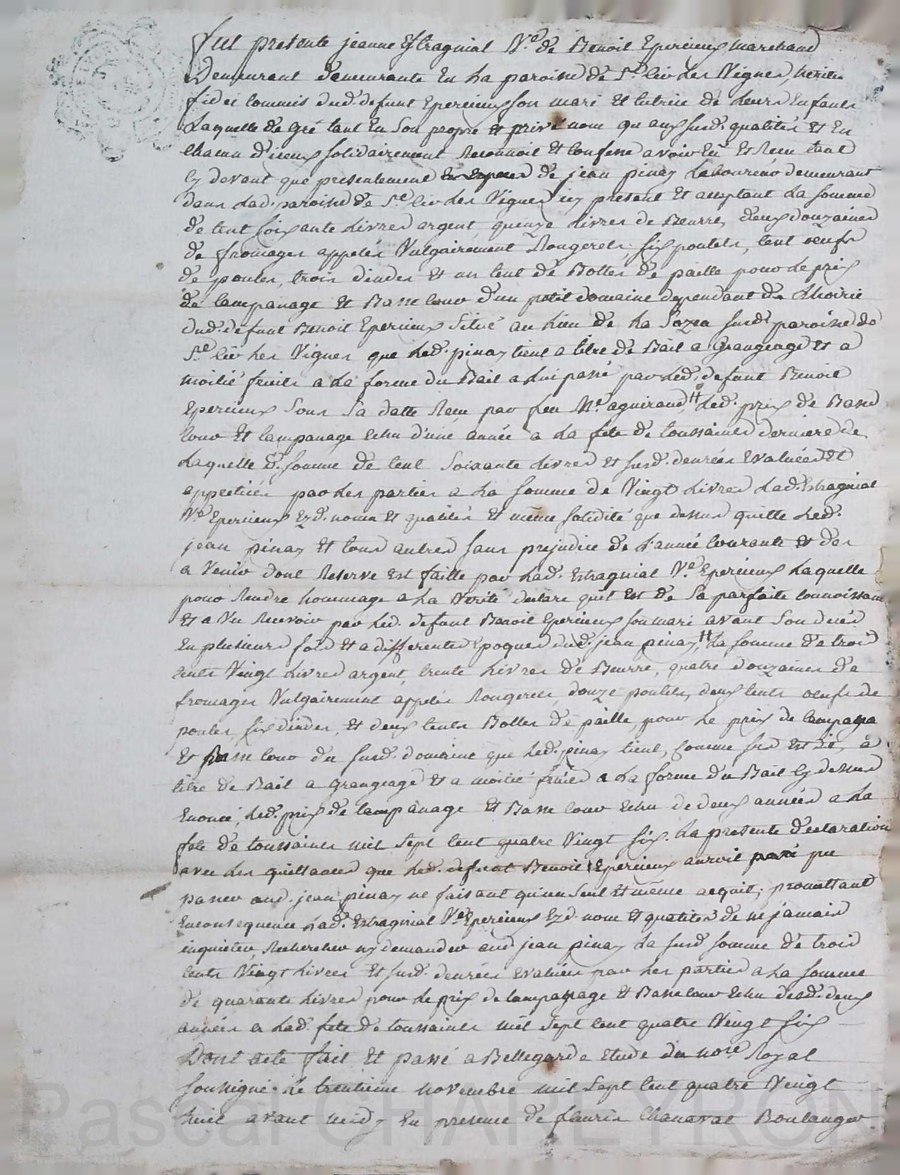 Fut presente jeanne Estragnial Ve de Benoit Epercieux marchand
Demeurant demeurante En La paroisse de St Cir Les Vignes, heritiere
fidei commis dud. defunt Epercieux son mari Et tutrice de Leurs Enfants
Laquelle de Gré tant En Son propre Et privé nom qu aux susd. qualités Et En
chacun d'iceux solidairement Reconnoit Et Confesse avoir Eu Et Recu tant
Cy devant que presentement de jean pinay Laboureur demeurant
dans Lad. paroisse de St Cir Les Vignes icy present Et acceptant La somme
de Cent soixante Livres argent, quinze Livres de Beurre, deux douzaines
de fromages appelés Vulgairement Rougerets six poulets, Cent oeufs
de poules, trois dindes Et un Cent de Bottes de paille pour Le prix
de Campanage Et Basse Cour d'un petit domaine dependant de L'hoirie
dud. defunt Benoit Epercieux Situé au Lieu de La susd. paroisse de
St Cir Les Vignes que Led. pinay tient a titre de Bail a Grangeage Et a
moitié fruits a La forme du Bail a Lui passé par Led. defunt Benoit
Epercieux Sous Sa datte Recu par feu Me aguiraud Led. prix de Basse
Cour Et Campanage Echu d'une année a La fete de toussaints derniere de
Laquelle d. somme de Cent Soixante Livres Et susd. denrées Evaluées Et
appreciées par Les parties a La somme de Vingt Livres Lad. Estragnial
Ve Epercieux Ezd. noms Et qualités Et même solidité que dessus quitte Led.
jean pinay Et tous autres sans prejudice de L'année Courante Et des
a Venir dont Reserve Est faitte par Lad. Estragnial Ve Epercieux Laquelle
pour Rendre hommage a La Verité declare qu'il Est de Sa parfaite Connoissance
Et a Vu Recevoir par Led. defunt Benoit Epercieux son mari avant Son decés
En plusieurs fois Et a differentes Epoques dud. jean pinay La somme de trois
Cents Vingt Livres argent, trente Livres de Beurre, quatre douzaines de
fromages Vulgairement appelés Rougerets, douze poulets, deux Cents oeufs de
poules, six dindes, Et deux Cents Bottes de paille, pour Le prix de Campanage
Et Basse Cour du susd. domaine que Led. pinay tient, Comme sus Est dit, à
titre de Bail a Grangeage Et a moitié fruits a La forme du Bail Cy dessus
Enoncé, Led. prix de Campanage Et Basse Cour Echu de deux années a La
fete de toussaints mil Sept Cent quatre Vingt six. La presente declaration
avec Les quittances que Led. defunt Benoit Epercieux auroit pu
passer aud. jean pinay ne faisant qu'un Seul Et même acquit; promettant
En consequence Lad. Estragnial Ve Epercieux Ezd. noms Et qualités de ne jamais
inquieter, Rechercher ny demander aud. jean pinay La susd. somme de trois
Cents Vingt Livres Et susd. denrées Evaluées par Les parties a La somme
de quarante Livres pour Le prix de Campanage Et Basse Cour Echu desd. deux
années a Lad. fete de toussaints mil Sept Cent quatre Vingt six
Dont acte fait Et passé a Bellegarde Etude du nore Royal
soussigné Le trentieme novembre mil Sept Cent quatre Vingt
huit avant midy En presence de fleuris Chanavat Boulanger
Pascal CHAREYRON